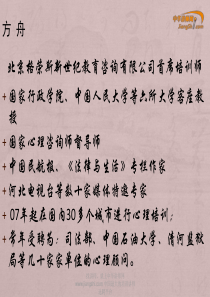 方舟
北京格荣斯新世纪教育咨询有限公司首席培训师
国家行政学院、中国人民大学等六所大学客座教
授
国家心理咨询师督导师
中国民航报、《法律与生活》专栏作家
河北电视台等数十家媒体特邀专家
07年起在国内30多个城市进行心理培训;
常年受聘为:司法部、中国石油大学、清河监狱
局等几十家家单位的心理顾问。